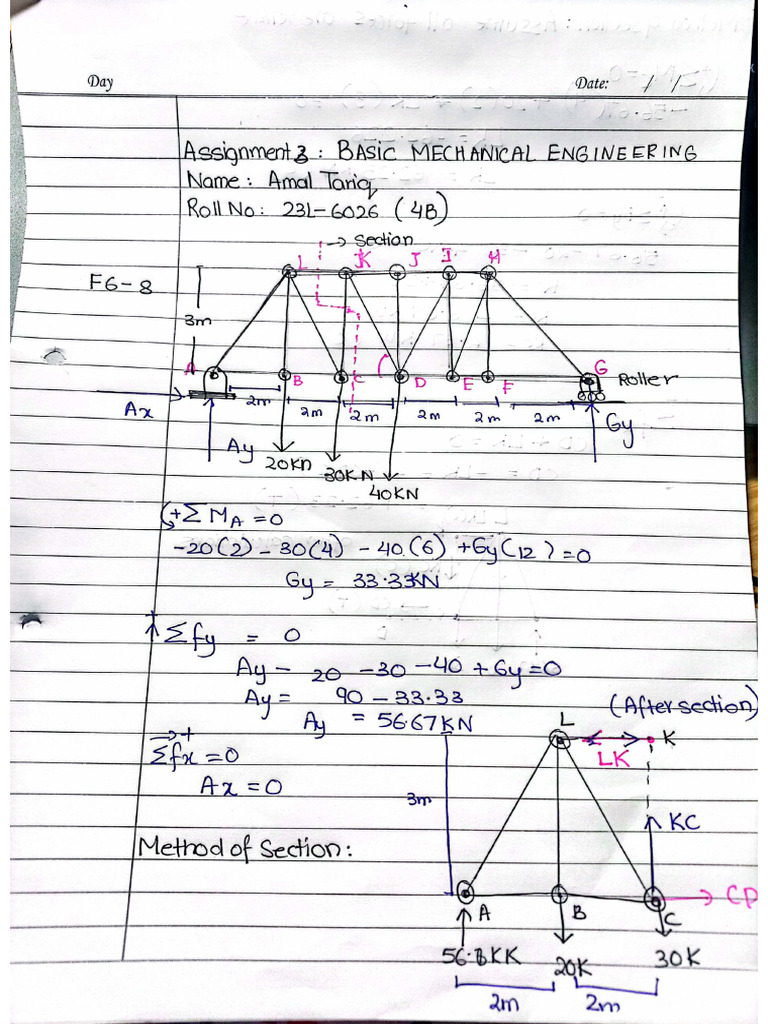 Day Date: / /
Assignment 3 : BASIC MECHANICAL ENGINEERING
Name : Amal Tariq
Roll No : 23L-6026 (4B)
→ section
F6-8
L K J I H
3m
A B C D E F G Roller
Ax 2m 2m 2m 2m 2m 2m Gy
Ay
20KN
30KN
40KN
(+ΣMA = 0
-20(2) - 30(4) - 40(6) + Gy(12) = 0
Gy = 33.33KN
+↑ Σfy = 0
Ay - 20 - 30 - 40 + Gy = 0
Ay = 90 - 33.33
Ay = 56.67KN
(After section)
→+
Σfx = 0
Ax = 0
L K
LK
3m
KC
Method of Section:
A B C CD
20K 30K
2m 2m